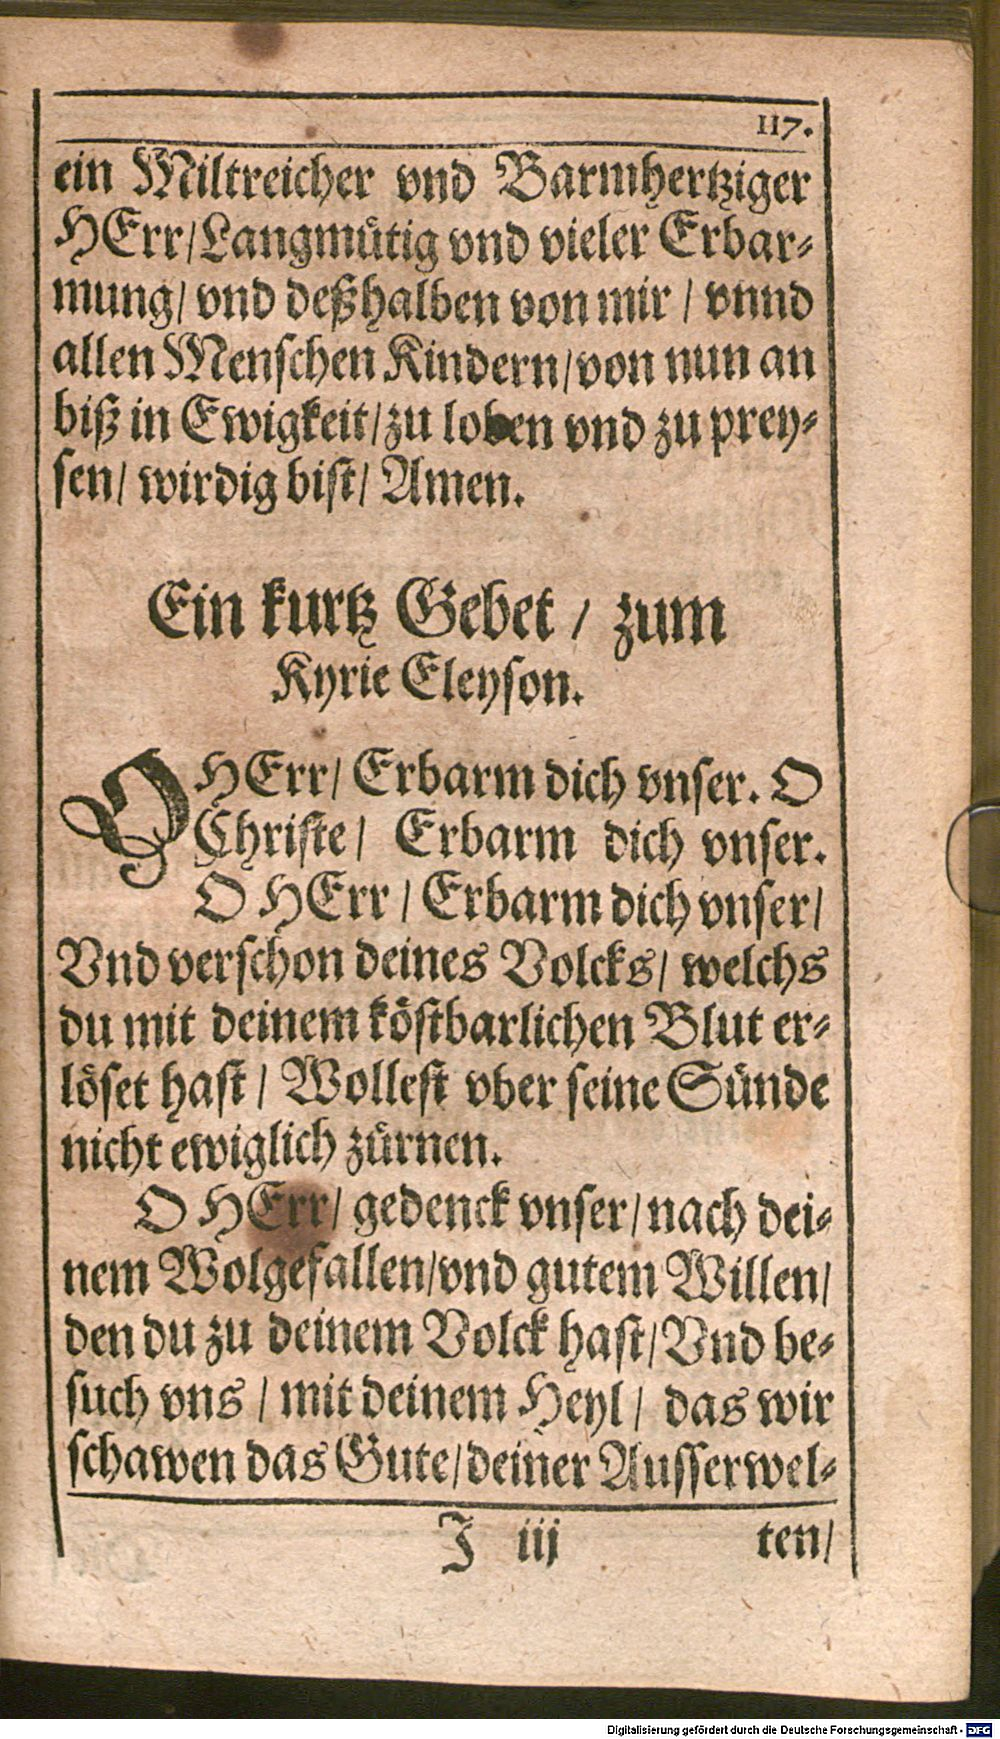 117.
ein Miltreicher vnd Barmhertziger
HErr/Langmütig vnd vieler Erbar-
mung/ vnd deßhalben von mir / vnnd
allen Menschen Kindern/von nun an
biß in Ewigkeit/zu loben vnd zu prey-
sen/ wirdig bist/ Amen.
Ein kurtz Gebet / zum
Kyrie Eleyson.
O HErr/ Erbarm dich vnser. O
Christe/ Erbarm dich vnser.
O HErr / Erbarm dich vnser/
Vnd verschon deines Volcks/ welchs
du mit deinem köstbarlichen Blut er-
löset hast / Wollest vber seine Sünde
nicht ewiglich zürnen.
O HErr/ gedenck vnser/nach dei-
nem Wolgefallen/vnd gutem Willen/
den du zu deinem Volck hast/Vnd be-
such vns / mit deinem Heyl / das wir
schawen das Gute/deiner Ausserwel-
J iij ten/
Digitalisierung gefördert durch die Deutsche Forschungsgemeinschaft - DFG